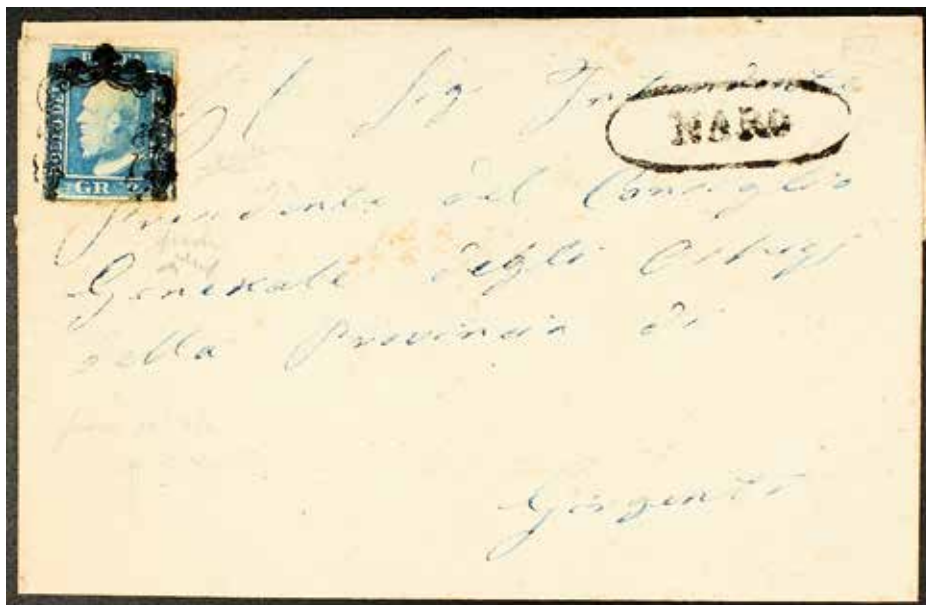 GR 2
NARO
Al Sig Intendente
Presidente del Consiglio
Generale degli Ospizj
della Provincia di
Girgenti